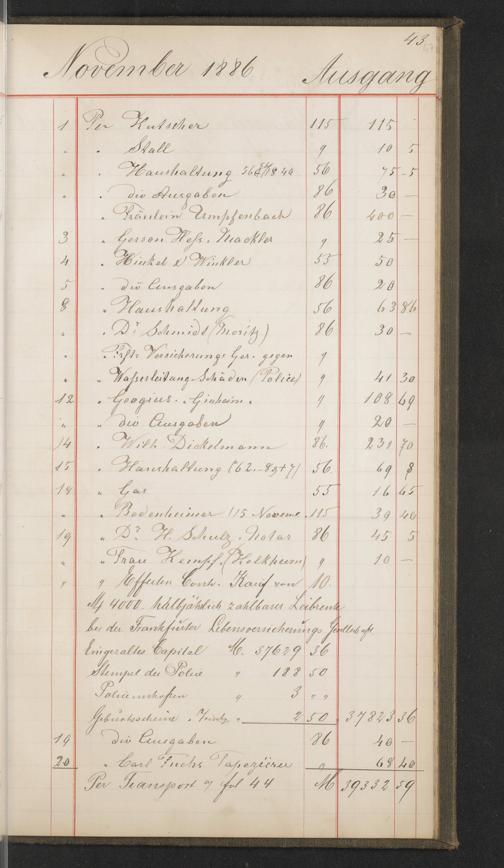 43.
November 1886 Ausgang
1 Per Kutscher 115 115
" " Stall 9 10 5
" " Haushaltung 56 75 5
" " div Ausgaben 86 30 —
" Fräulein Umpfenbach 86 400 —
3 " Gerson Hess. Mackler 9 25 —
4 " Hinkel & Winkler 55 50
5 " div Ausgaben 86 20
8 " Haushaltung 56 63 86
" " Dr Schmidt (Moritz) 86 30 —
" " Versicherungs Ges. gegen 9
" " Wasserleitung Schäden (Police) 9 41 30
12 " Ginheim. 9 108 69
" " div Ausgaben 9 20 —
14 " Wilh. Dickelmann 86 231 70
15 " Haushaltung (62.-83+7) 56 69 8
18 " Gas 55 16 65
" " Bodenheimer 115 39 40
19 " Dr H. Schulz. Notar 86 45 5
" " Frau Kempf. (Holkheim) 9 10 —
" " Effecten Conto. Kauf von 10
M 4000. halbjährlich zahlbarer Leibrente
bei der Frankfurter Lebensversicherungs Gesellschaft.
Eingezaltes Capital M. 37629 56
Stempel der Police " 188 50
Policenkosten " 3 " "
Geburtsscheine " 2 50 37823 56
19 div Ausgaben 86 40 —
20 " Carl Fuchs Tapezierer 9 68 40
Per Transport a/ fol 44 M 39332 59